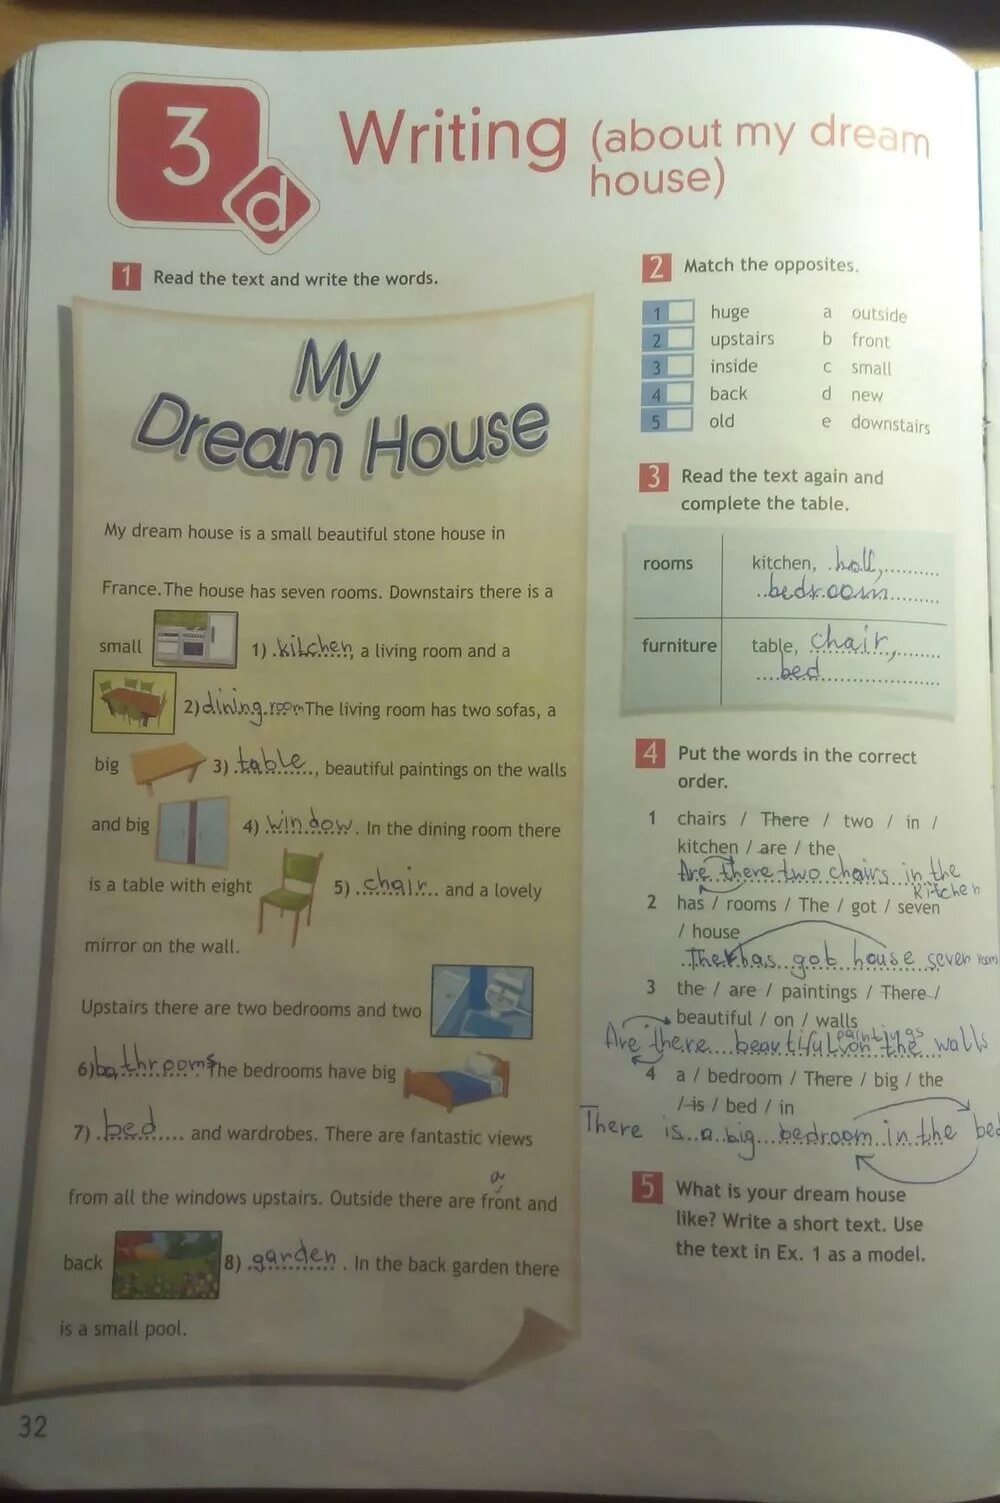 3
d
Writing (about my dream
house)
1 Read the text and write the words.
My
Dream House
My dream house is a small beautiful stone house in
France. The house has seven rooms. Downstairs there is a
small 1) kitchen, a living room and a
2) dining room The living room has two sofas, a
big 3) table, beautiful paintings on the walls
and big 4) window. In the dining room there
is a table with eight 5) chair and a lovely
mirror on the wall.
Upstairs there are two bedrooms and two
6) bathrooms. The bedrooms have big
7) bed and wardrobes. There are fantastic views
a
from all the windows upstairs. Outside there are front and
back 8) garden. In the back garden there
is a small pool.
32
2 Match the opposites.
1 huge a outside
2 upstairs b front
3 inside c small
4 back d new
5 old e downstairs
3 Read the text again and
complete the table.
rooms kitchen, hall,
bedroom
furniture table, chair,
bed
4 Put the words in the correct
order.
1 chairs / There / two / in /
kitchen / are / the
Are there two chairs in the
kitchen
2 has / rooms / The / got / seven
/ house
The has got house seven room
3 the / are / paintings / There /
beautiful / on / walls
paintings
Are there beautiful on the walls
4 a / bedroom / There / big / the
/ is / bed / in
There is a big bedroom in the bed
5 What is your dream house
like? Write a short text. Use
the text in Ex. 1 as a model.